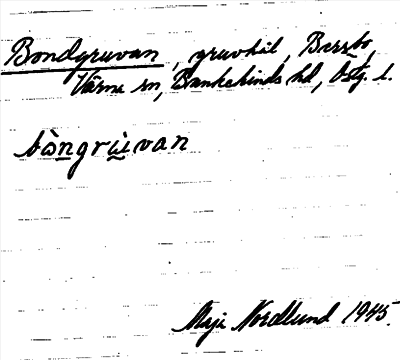 Bondgruvan, gruvhål, Borsbo,
Värna sn, Bankekinds hd, Östg. l.
bòngrù̀van
Maja Nordlund 1945.